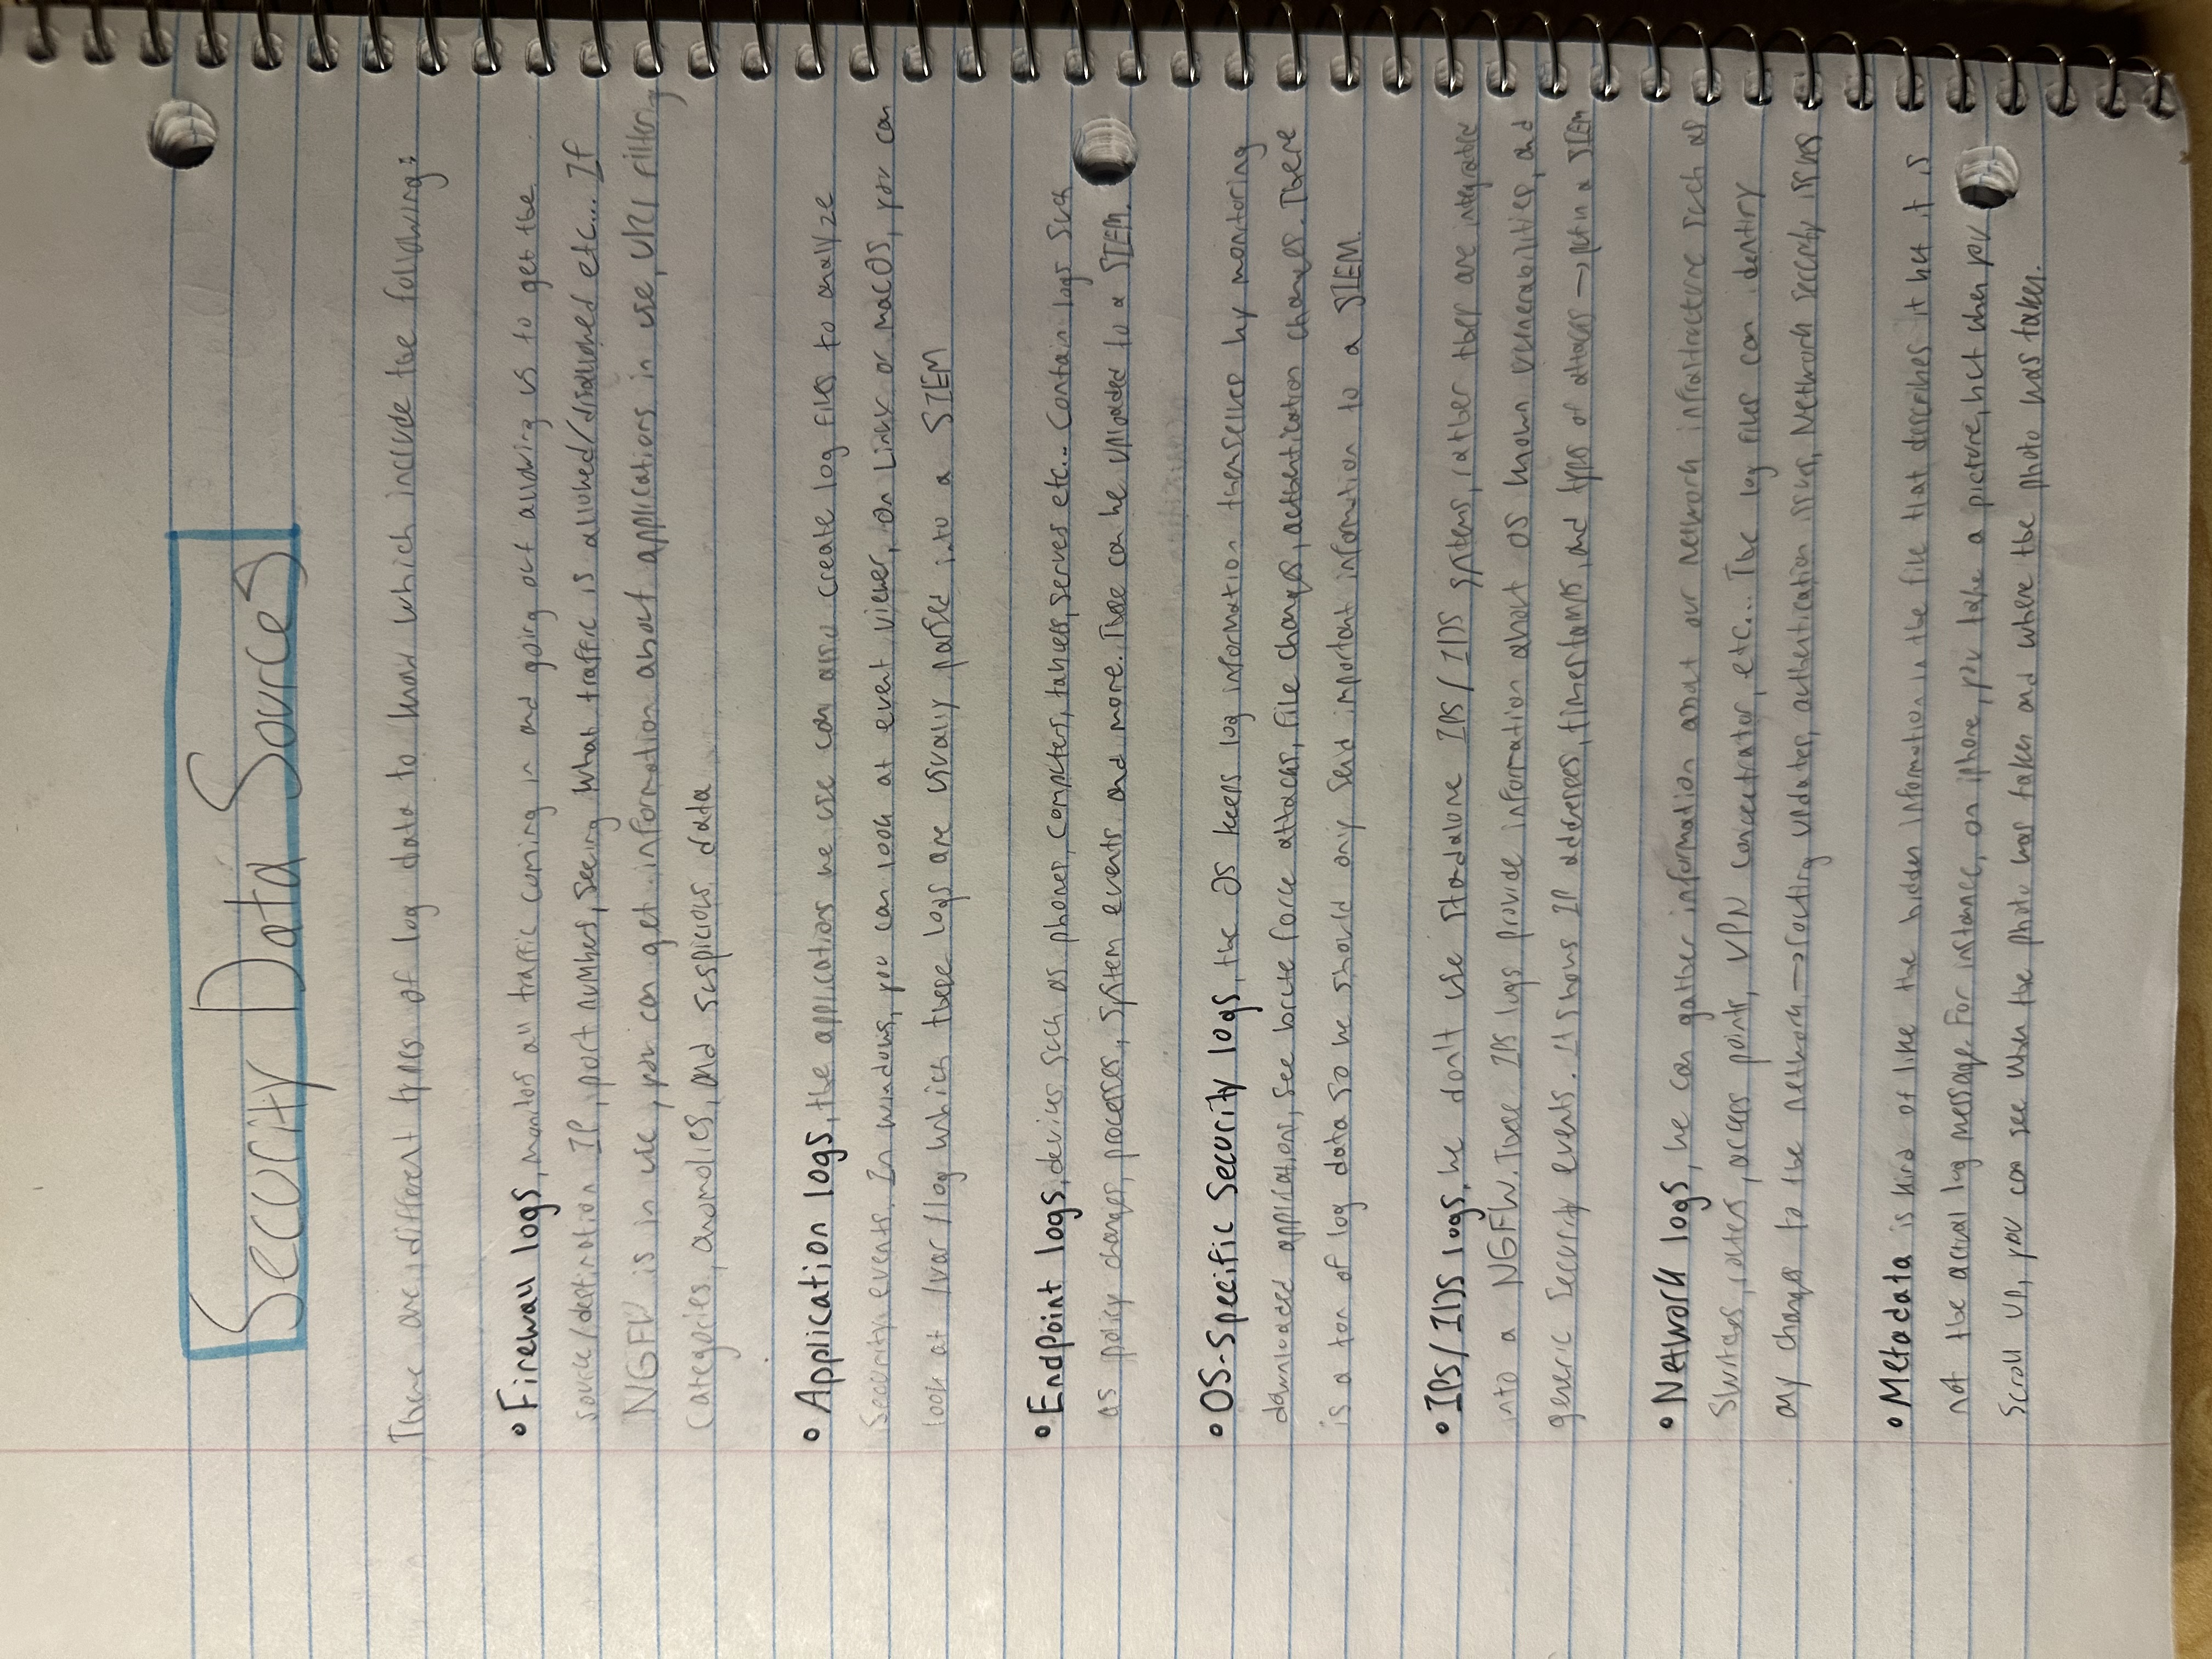 Security Data Sources
There are different types of log data to know which include the following:
• Firewall logs, monitors all traffic coming in and going out allowing us to get the
source/destination IP, port numbers, seeing what traffic is allowed/disallowed etc... If
NGFW is in use, you can get information about applications in use, URl filtering
categories, anomolies, and suspicious data
• Application logs, the applications we use can also create log files to analyze
Security events. In windows, you can look at event viewer, On Linux or macOS, you can
look at /var/log which these logs are usually parsed into a SIEM
• Endpoint logs, devices such as phones, computers, tablets, serves etc... Contain logs such
as policy changes, processes, system events and more. These can be uploaded to a SIEM.
• OS-Specific Security logs, the OS keeps log information themselves by monitoring
downloaded applications, see brute force attacks, file changes, authentication changes. There
is a ton of log data so we should only send important information to a SIEM.
• IPS/IDS logs, we don't use standalone IPS/IDS systems, rather they are integrated
into a NGFW. These IPS logs provide information about OS known vulnerabilities, and
generic security events. It shows IP addresses, timestamps, and types of attacks → put in a SIEM
• Network logs, we can gather information about our network infrastructure such as
Switches, routers, access points, VPN concentrator, etc... The log files can identify
any changes to the network → routing updates, authentication issues, Network security issues
• Metadata is kind of like the hidden information in the file that describes it but it is
not the actual log message. For instance, on iphone, you take a picture, but when you
Scroll up, you can see when the photo was taken and where the photo was taken.